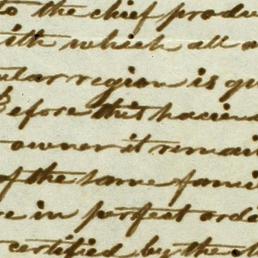 to the chief produ
with which all a
ular region is qu
Before this hacien
owner it remai
of the same fami
re in perfect orde
certified by the